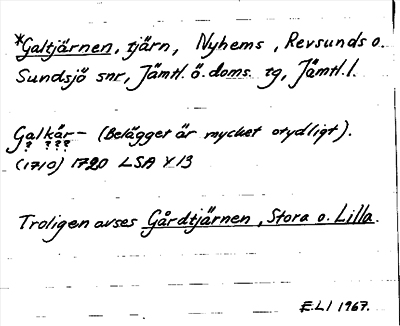 *Galtjärnen, tjärn, Nyhems, Revsunds o.
Sundsjö snr, Jämtl. ö. doms. tg, Jämtl. l.
Galkår- (Belägget är mycket otydligt).
? ???
(1710) 1720 LSA Y 13
Troligen avses Gårdtjärnen, Stora o. Lilla.
E.LI 1967.